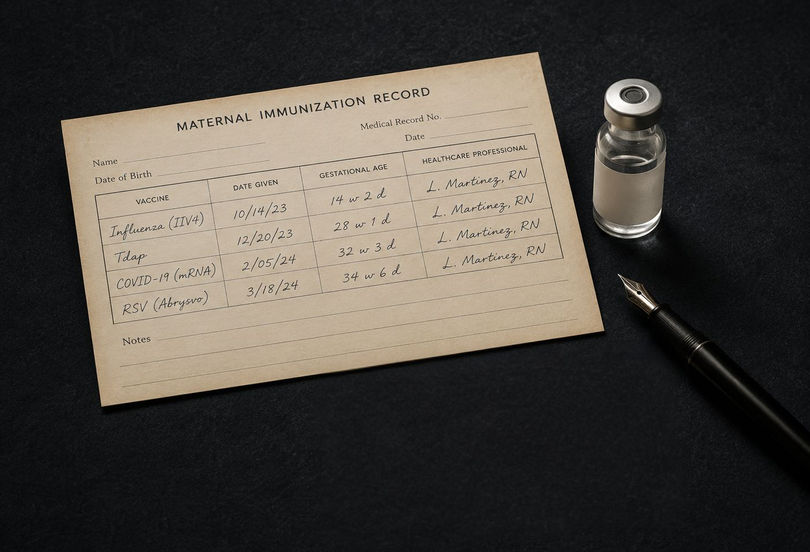 MATERNAL IMMUNIZATION RECORD
Medical Record No.
Name
Date
Date of Birth
VACCINE DATE GIVEN GESTATIONAL AGE HEALTHCARE PROFESSIONAL
Influenza (IIV4) 10/14/23 14 w 2 d L. Martinez, RN
Tdap 12/20/23 28 w 1 d L. Martinez, RN
COVID-19 (mRNA) 2/05/24 32 w 3 d L. Martinez, RN
RSV (Abrysvo) 3/18/24 34 w 6 d L. Martinez, RN
Notes